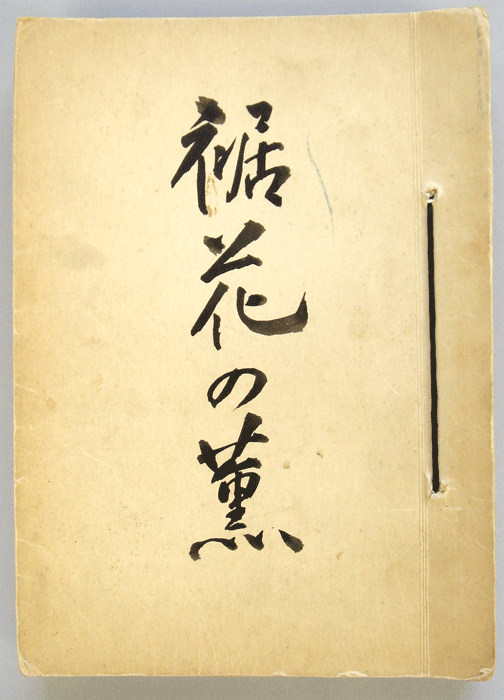 裾花の薫